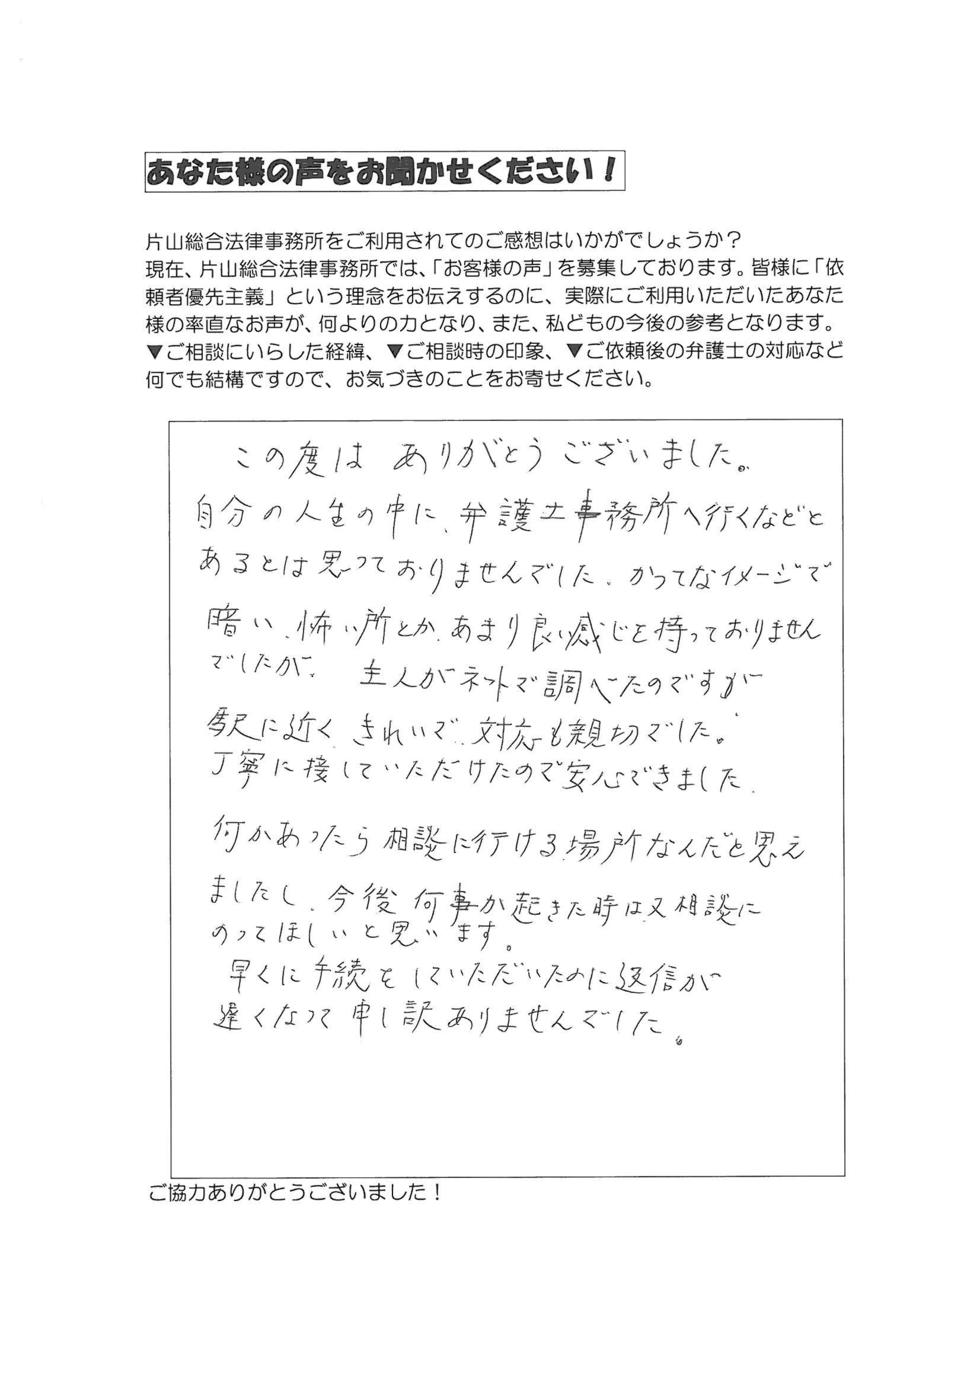 あなた様の声をお聞かせください！
片山総合法律事務所をご利用されてのご感想はいかがでしょうか？
現在、片山総合法律事務所では、「お客様の声」を募集しております。皆様に「依
頼者優先主義」という理念をお伝えするのに、実際にご利用いただいたあなた
様の率直なお声が、何よりの力となり、また、私どもの今後の参考となります。
▼ご相談にいらした経緯、▼ご相談時の印象、▼ご依頼後の弁護士の対応など
何でも結構ですので、お気づきのことをお寄せください。
この度は ありがとうございました。
自分の人生の中に、弁護士事務所へ行くなどと
あるとは思っておりませんでした、かってなイメージで
暗い、怖い所とか、あまり良い感じを持っておりません
でしたが、 主人がネットで調べたのですが
駅に近く、きれいで、対応も親切でした。
丁寧に接していただけたので安心できました、
何かあったら相談に行ける場所なんだと思え
ましたし、今後 何事か起きた時は又相談に
のってほしいと思います。
早くに手続をしていただいたのに返信が
遅くなって申し訳ありませんでした。
ご協力ありがとうございました！